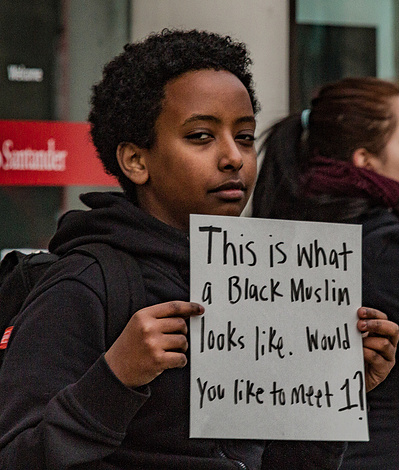 Welcome
Santander
This is what
a Black Muslim
looks like. Would
You like to meet 1?